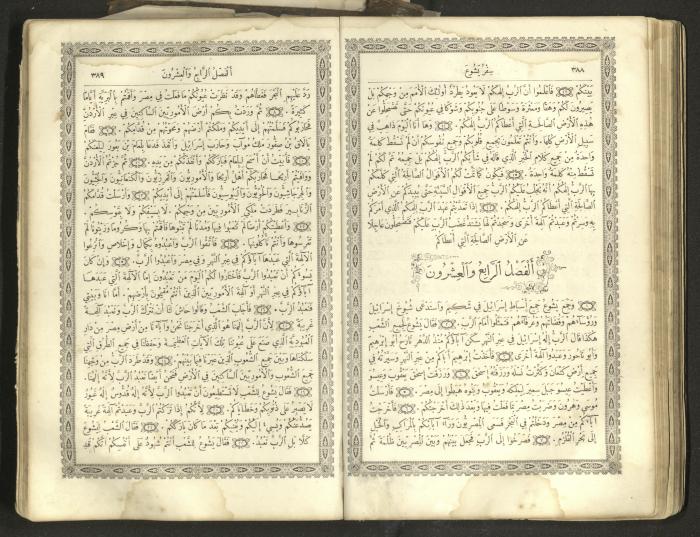 ٣٨٨
سفر يشوع
بينكم فاعلموا أن الرب إلهكم لا يعود يطرد أولئك الأمم من وجهكم بل
يصيرون لكم وهقا ومعثرة وسوطا على جنوبكم وشوكا في عيونكم حتى تضمحلوا عن
هذه الأرض الصالحة التي أعطاكم الرب إلهكم. وها أنا اليوم ذاهب في
سبيل الأرض كلها. وأنتم تعلمون بجميع قلوبكم وجميع نفوسكم أن لم تسقط كلمة
واحدة من جميع كلام الخير الذي قاله في شأنكم الرب إلهكم بل جميعه تم لكم لم
تسقط منه كلمة واحدة. فيكون كما تمت لكم الأقوال الصالحة التي كلمكم
بها الرب إلهكم أنه يجلب عليكم الرب جميع الأقوال السيئة حتى يبيدكم عن الأرض
الصالحة التي أعطاكم الرب إلهكم. إذا تعديتم عهد الرب إلهكم الذي أمركم
به وسرتم وعبدتم آلهة أخرى وسجدتم لها يشتد غضب الرب عليكم فتضمحلون عاجلا
عن الأرض الصالحة التي أعطاكم
الفصل الرابع والعشرون
وجمع يشوع جميع أسباط إسرائيل في شكيم واستدعى شيوخ إسرائيل
ورؤساءهم وقضاتهم وعرفاءهم فمثلوا أمام الرب. فقال يشوع لجميع الشعب
هكذا قال الرب إله إسرائيل في عبر النهر سكن آباؤكم منذ الدهر تارح أبو إبرهيم
وأبو ناحور وعبدوا آلهة أخرى. فأخذت إبرهيم أباكم من عبر النهر وسيرته في
جميع أرض كنعان وكثرت نسله ورزقته إسحق. ورزقت إسحق يعقوب وعيسو
وأعطيت عيسو جبل سعير ليملكه ويعقوب وبنوه هبطوا إلى مصر. فأرسلت
موسى وهرون وضربت مصر بما فعلت فيها وبعد ذلك أخرجتكم. فأخرجت
آباءكم من مصر ودخلتم في البحر فسعى المصريون وراء آبائكم بالمراكب والخيل
إلى بحر القلزم. فصرخوا إلى الرب فجعل بينهم وبين المصريين ظلمة ثم
الفصل الرابع والعشرون
٣٨٩
رد عليهم البحر فغطاهم وقد نظرت عيونكم ما فعلت في مصر وأقمتم بالبرية أياما
كثيرة. ثم وردت بكم أرض الأموريين الساكنين في عبر الأردن
فحاربوكم فسلمتهم إلى أيديكم وملكتم أرضهم ومحوتهم من قدامكم. فقام
بالاق بن صفور ملك موآب وحارب إسرائيل وأنفذ فدعا بلعام بن بعور ليلعنكم
فأبيت أن أسمع لبلعام فبارككم وأنقذتكم من يده. ثم جزتم الأردن
ووافيتم أريحا فحاربكم أهل أريحا والأموريون والفرزيون والكنعانيون والحثيون
والجرجاشيون والحويون واليبوسيون فأسلمتهم إلى أيديكم. وأرسلت قدامكم
الزنابير فطردت ملكي الأموريين من وجهكم. لا بسيفكم ولا بقوسكم.
وأعطيتكم أرضا لم تتعبوا فيها ومدنا لم تبنوها فأقمتم بها وكروما وزيتونا لم
تغرسوها وأنتم تأكلونها. فاتقوا الرب واعبدوه بكمال وإخلاص وانزعوا
الآلهة التي عبدها آباؤكم في عبر النهر وفي مصر واعبدوا الرب. وإن كان
يسوءكم أن تعبدوا الرب فاختاروا لكم اليوم من تعبدون إما الآلهة التي عبدها
آباؤكم في عبر النهر أو آلهة الأموريين الذين أنتم مقيمون بأرضهم. أما أنا وبيتي
فنعبد الرب. فأجاب الشعب وقالوا حاش لنا أن نترك الرب ونعبد آلهة
غريبة. لأن الرب إلهنا هو الذي أخرجنا نحن وآباءنا من أرض مصر من دار
العبودية الذي صنع على عيوننا تلك الآيات العظيمة وحفظنا في جميع الطرق التي
سلكناها وبين جميع الشعوب الذين عبرنا فيما بينهم. وقد طرد الرب من وجهنا
جميع الشعوب والأموريين الساكنين في الأرض فنحن أيضا نعبد الرب لأنه إلهنا.
فقال يشوع للشعب لا تستطيعون أن تعبدوا الرب لأنه إله قدوس إله غيور
لا يصبر على ذنوبكم وخطاياكم. لأنكم إذا تركتم الرب وعبدتم آلهة غريبة
يصد عنكم ويسيء إليكم ويفنيكم بعد ما كان باركم. فقال الشعب ليشوع
كلا بل الرب نعبد. فقال يشوع للشعب أنتم شهود على أنفسكم أنكم قد